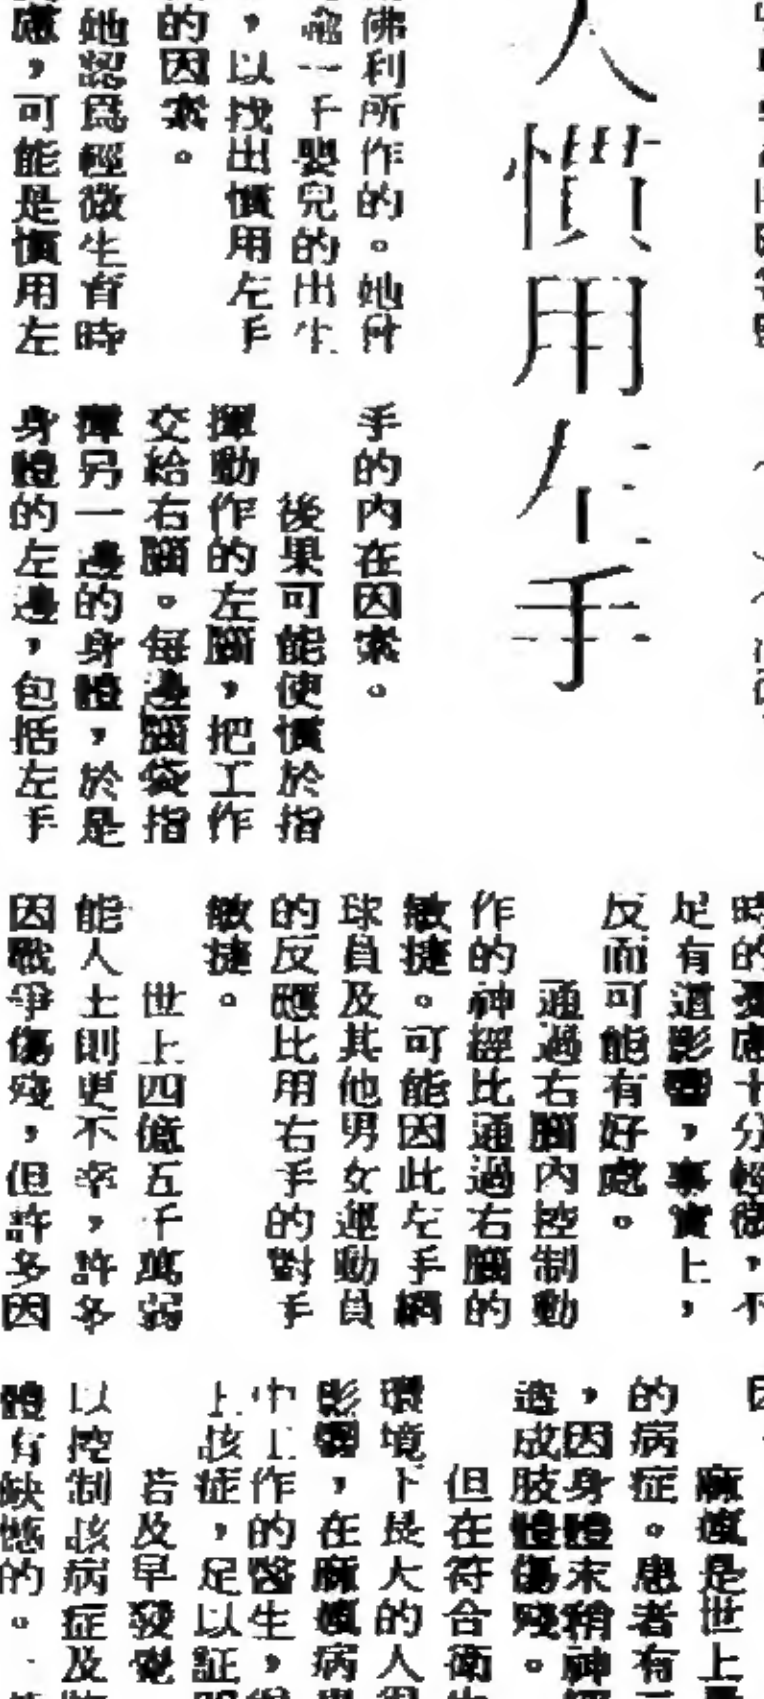 人慣用左手
佛利所作的。她
一千嬰兒的出生
，以找出慣用左手
的因素。
她認爲輕微生育時
，可能是慣用左
手的內在因素。
後果可能使慣於指
揮動作的左腦，把工作
交給右腦。每邊腦袋指
揮另一邊的身體，於是
身體的左邊，包括左手
時的憂慮十分輕微，不
足有道影響，事實上，
反而可能有好處。
通過右腦內控制動
作的神經比通過右腦的
敏捷。可能因此左手網
球員及其他男女運動員
的反應比用右手的對手
敏捷。
世上四億五千萬弱
能人士則更不幸，許多
因戰爭傷殘，但許多因
麻瘋是世上
的病症。患者有
，因身體末稍神經
造成肢體傷殘。
但在符合衛生
環境下長大的人
影響，在麻瘋病
中工作的醫生，
上該症，足以証
若及早發覺
以控制該病症及
體有缺憾的。